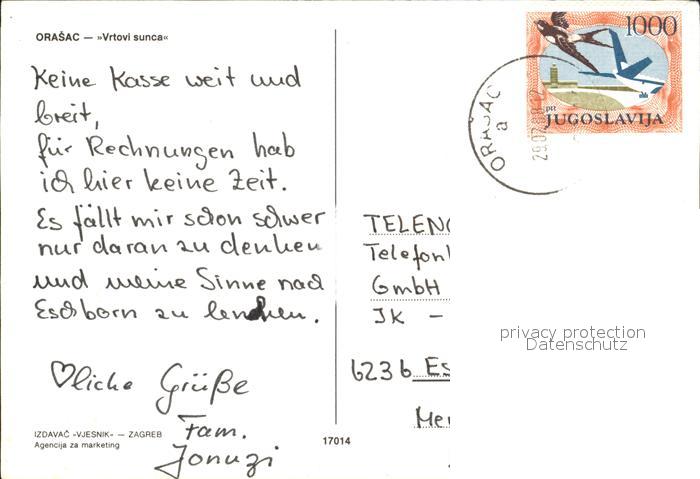 ORAŠAC — »Vrtovi sunca«
Keine Kasse weit und
breit,
für Rechnungen hab
ich hier keine Zeit.
Es fällt mir schon schwer
nur daran zu denken
und meine Sinne nach
Eschborn zu lenken.
♡liche Grüße
Fam.
Jonuzi
IZDAVAČ »VJESNIK« — ZAGREB
Agencija za marketing
17014
1000
ptt
JUGOSLAVIJA
ORAŠAC
a
29.07.88-12
TELENO
Telefon
GmbH
JK -
6236 Es
Mer
privacy protection
Datenschutz